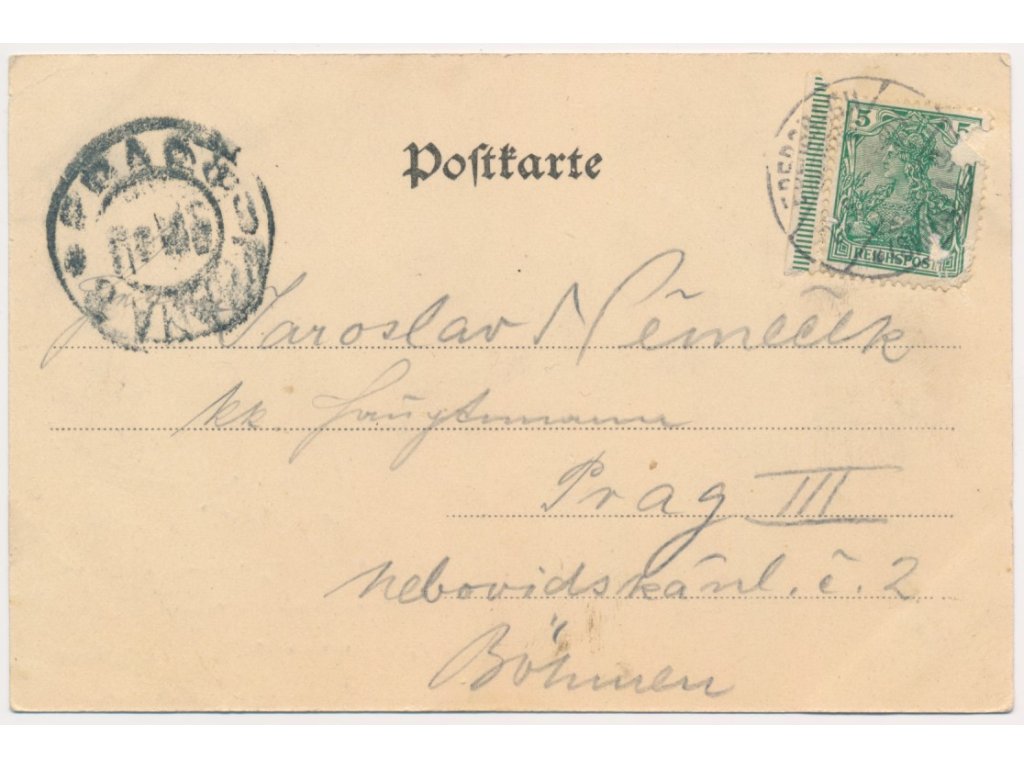 Postkarte
5 5
REICHSPOST
Jaroslav Němeček
kk. Hauptmann
Prag III
Nebovidská ul. č. 2
Böhmen